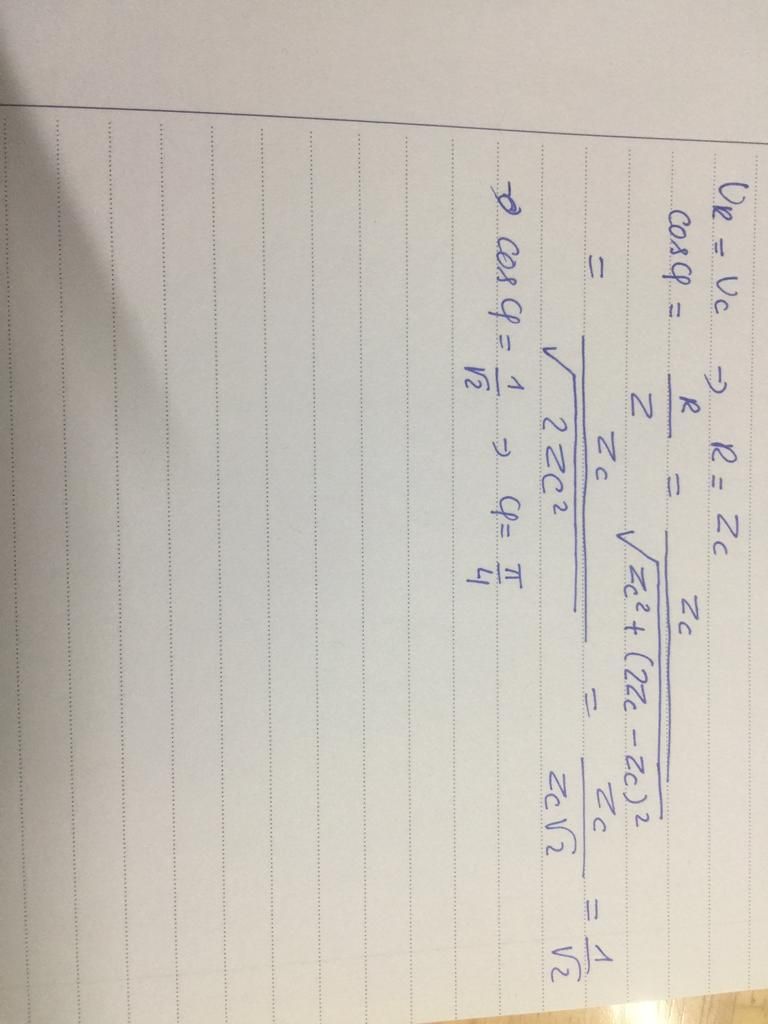 UR = UC → R = ZC
cosφ = R/Z = ZC/√(ZC² + (2ZC - ZC)²)
= ZC/√(2ZC²) = ZC/(ZC√2) = 1/√2
→ cosφ = 1/√2 → φ = π/4